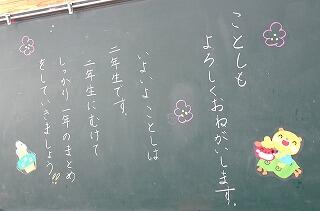 ことしも
よろしくおねがいします。
いよいよことしは
二年生です。
二年生にむけて
しっかり一年のまとめ
をしていきましょう!!